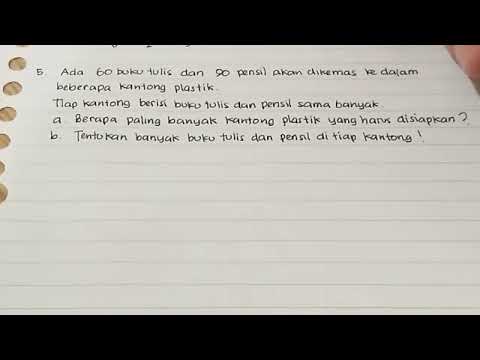 5. Ada 60 buku tulis dan 90 pensil akan dikemas ke dalam
beberapa kantong plastik.
Tiap kantong berisi buku tulis dan pensil sama banyak.
a. Berapa paling banyak kantong plastik yang harus disiapkan?
b. Tentukan banyak buku tulis dan pensil di tiap kantong!